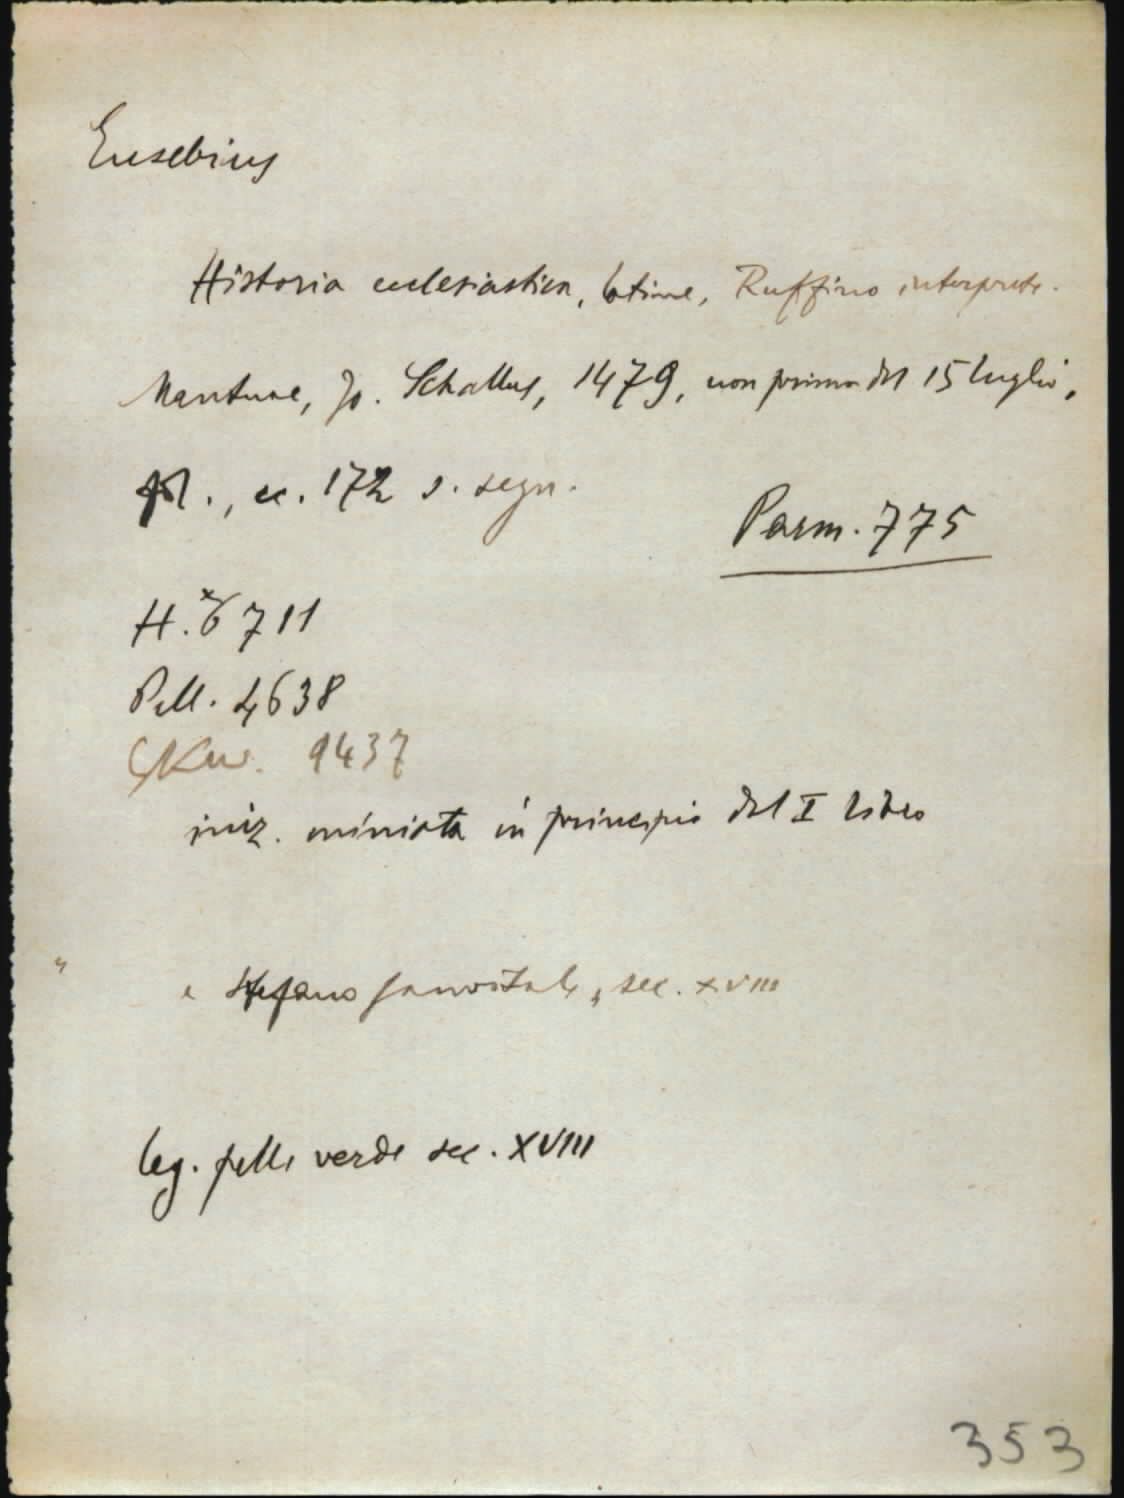 Eusebius
Historia ecclesiastica, latine, Ruffino interprete.
Mantuae, Jo. Schallus, 1479, non prima del 15 luglio,
fol., cc. 172 s. segn.
Parm. 775
H.* 6711
Pell. 4638
GKW. 9437
iniz. miniata in principio del I libro
" Stefano Sanvitale, sec. XVIII
leg. pelle verde sec. XVIII
353